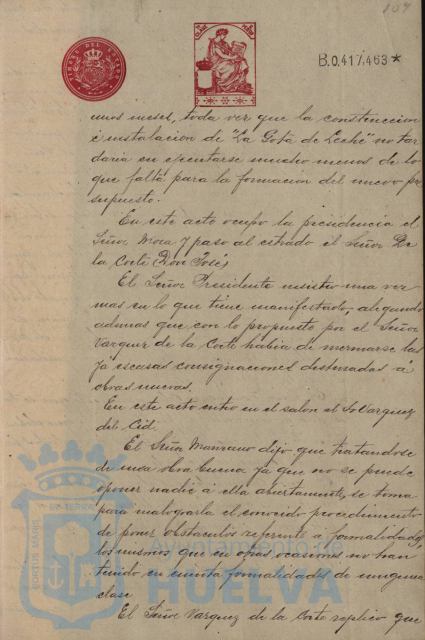 107
TIMBRE DEL ESTADO
B.0.417,463*
unos meses, toda vez que la construccion
é instalacion de "La Gota de Leche" no tar
daria en ejecutarse mucho menos de lo
que falta para la formacion del nuevo pre
supuesto.
En este acto ocupo la presidencia el
Señor Mora y paso al estrado el Señor De
la Corte Don José,
El Señor Presidente insistio una vez
mas en lo que tiene manifestado, alegando
ademas que con lo propuesto por el Señor
Vazquez de la Corte habia de mermarse las
ya escasas consignaciones destinadas á
obras nuevas.
En este acto entro en el salon el Sr Vazquez
del Cid.
El Señor Manzano dijo que tratandose
de una obra buena ya que no se puede
oponer nadie á ella abiertamente, se toma
para malograrla el conocido procedimiento
de poner obstaculos referente a formalidades
los mismos que en otras ocasiones no han
tenido en cuenta formalidades de ninguna
clase
El Señor Vazquez de la Corte replico que
PORTUS MARIS
ET TERRÆ
Ayuntamiento de
HUELVA